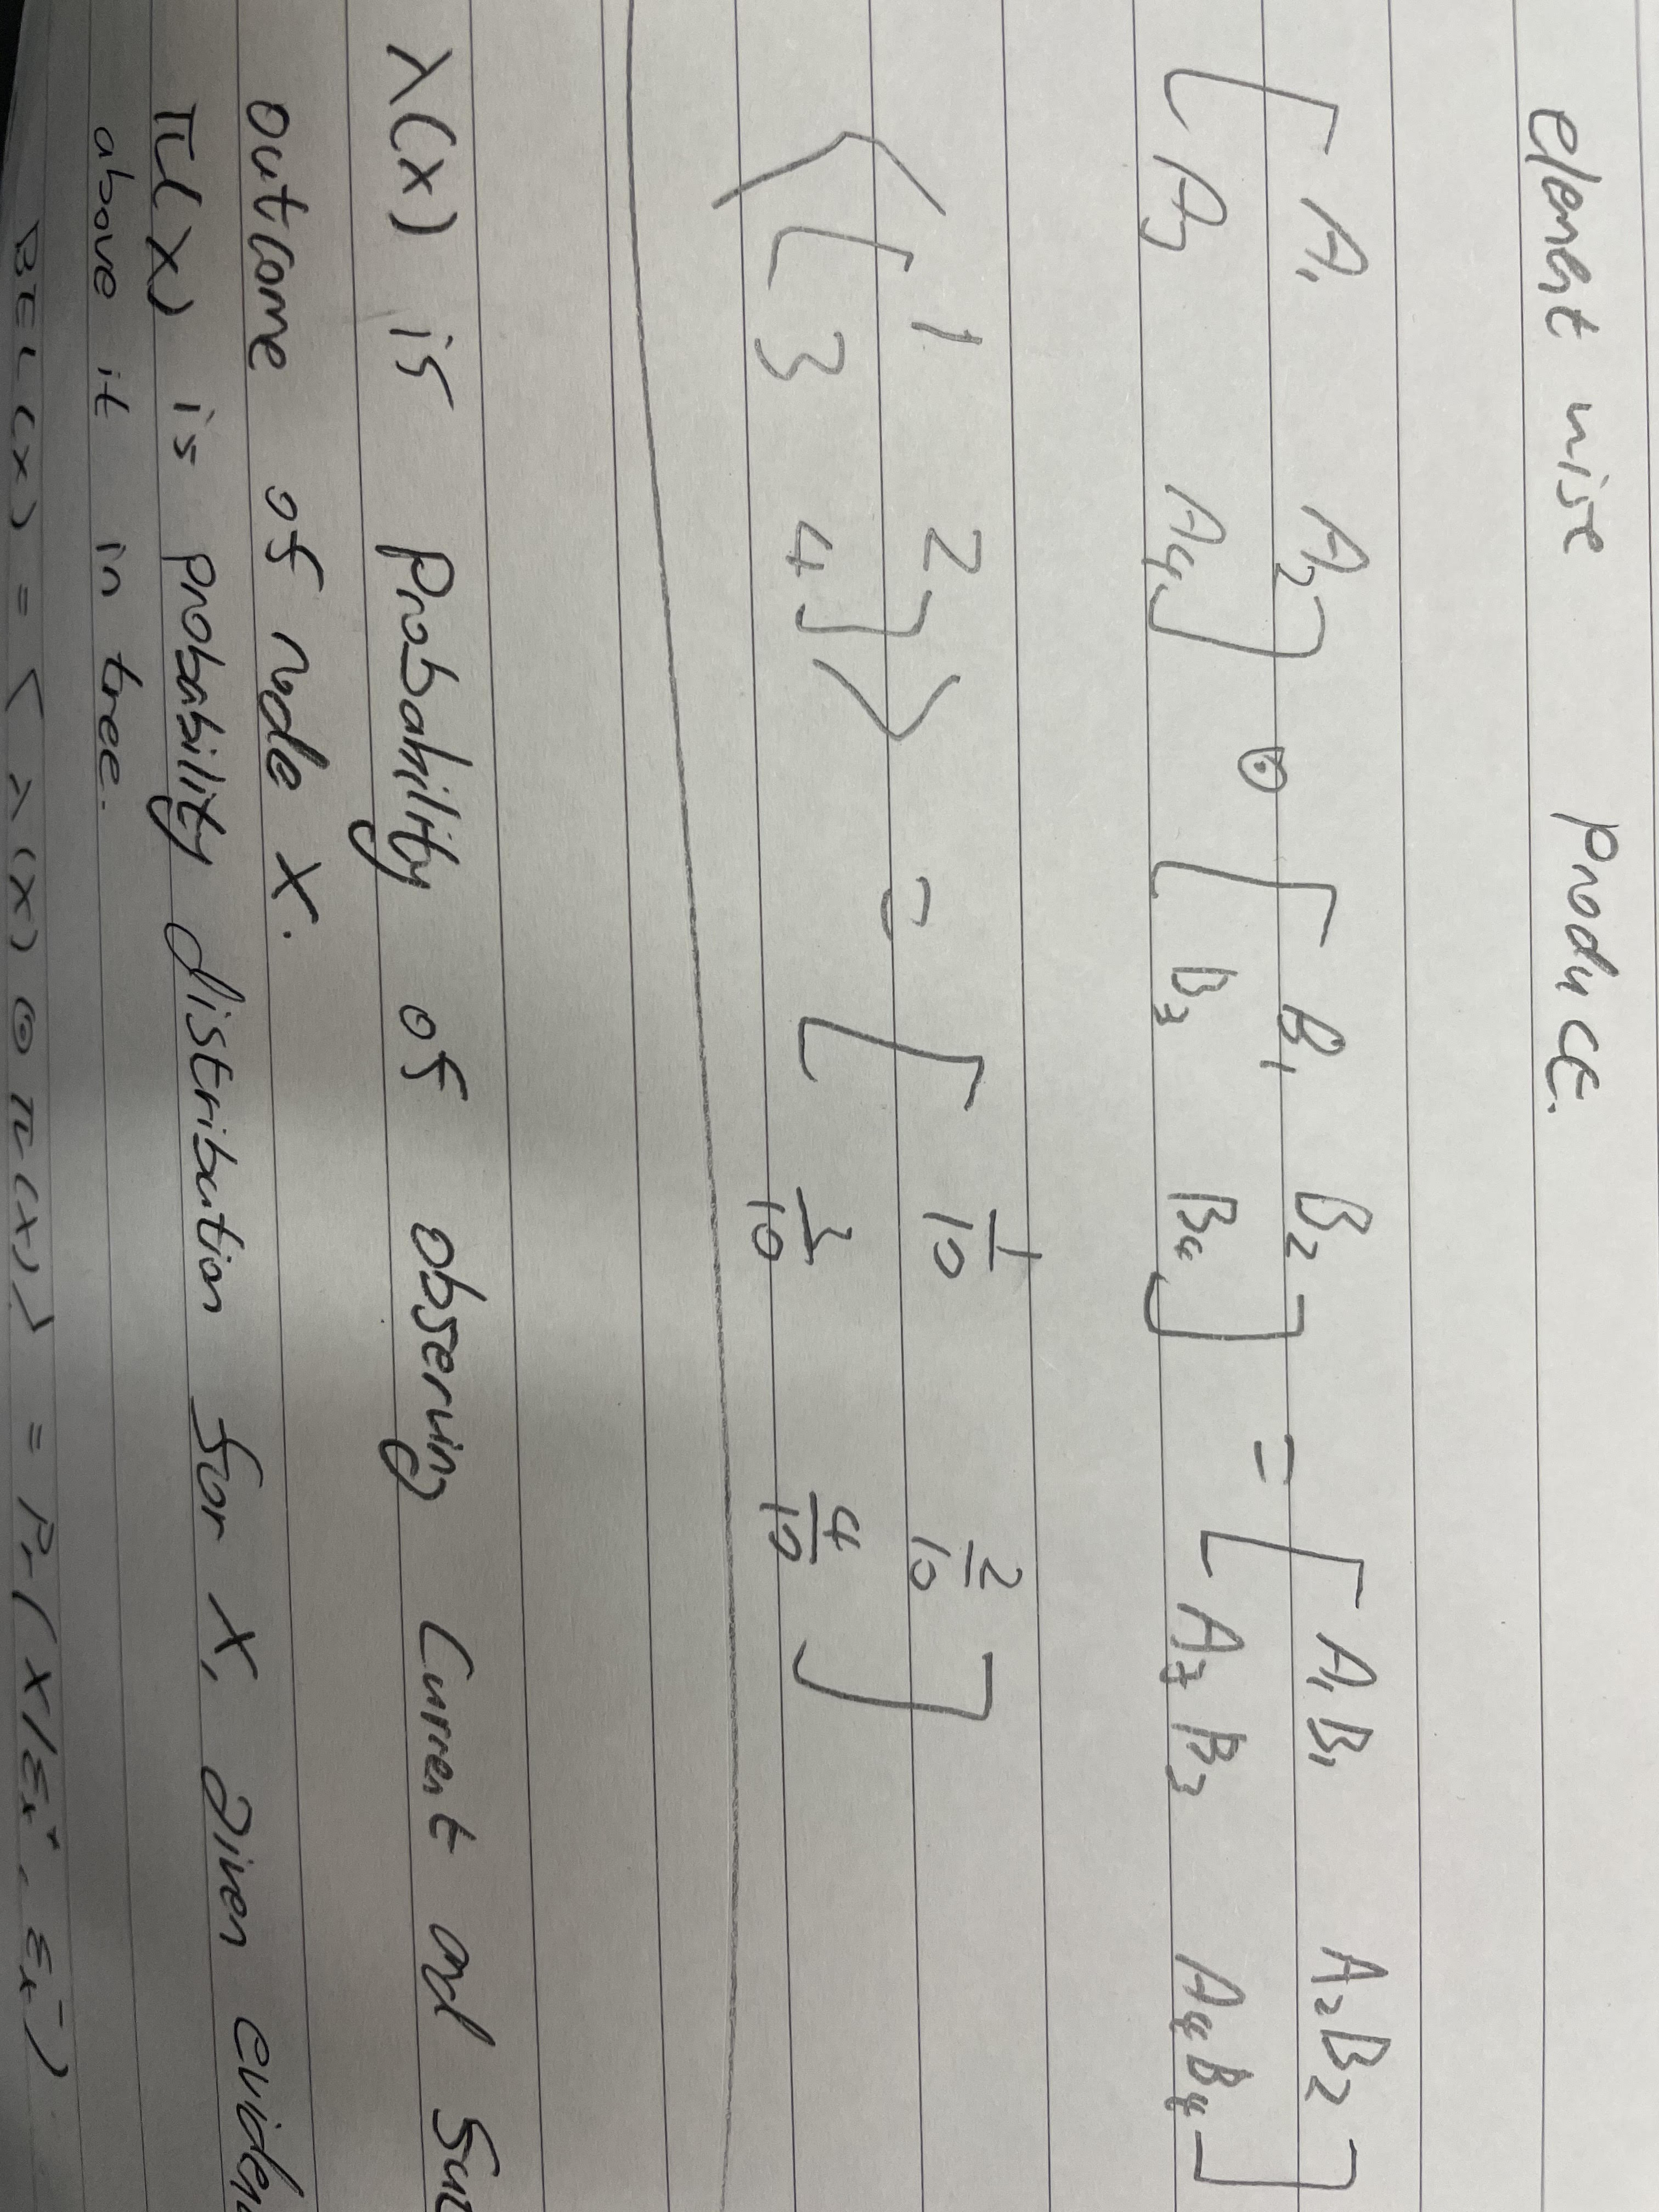 element wise product.
[ A₁ A₂ ] ⊙ [ B₁ B₂ ] = [ A₁B₁ A₂B₂ ]
[ A₃ A₄ ] [ B₃ B₄ ] [ A₃B₃ A₄B₄ ]
⟨ [ 1 2 ] ⟩ = [ 1/10 2/10 ]
[ 3 4 ] [ 3/10 4/10 ]
λ(x) is probability of observing current and
outcome of node X.
π(x) is probability distribution for X, given
above it in tree.
BEL(x) = ⟨λ(x) ⊙ π(x)⟩ = Pr(X/Ex⁺, Ex⁻)